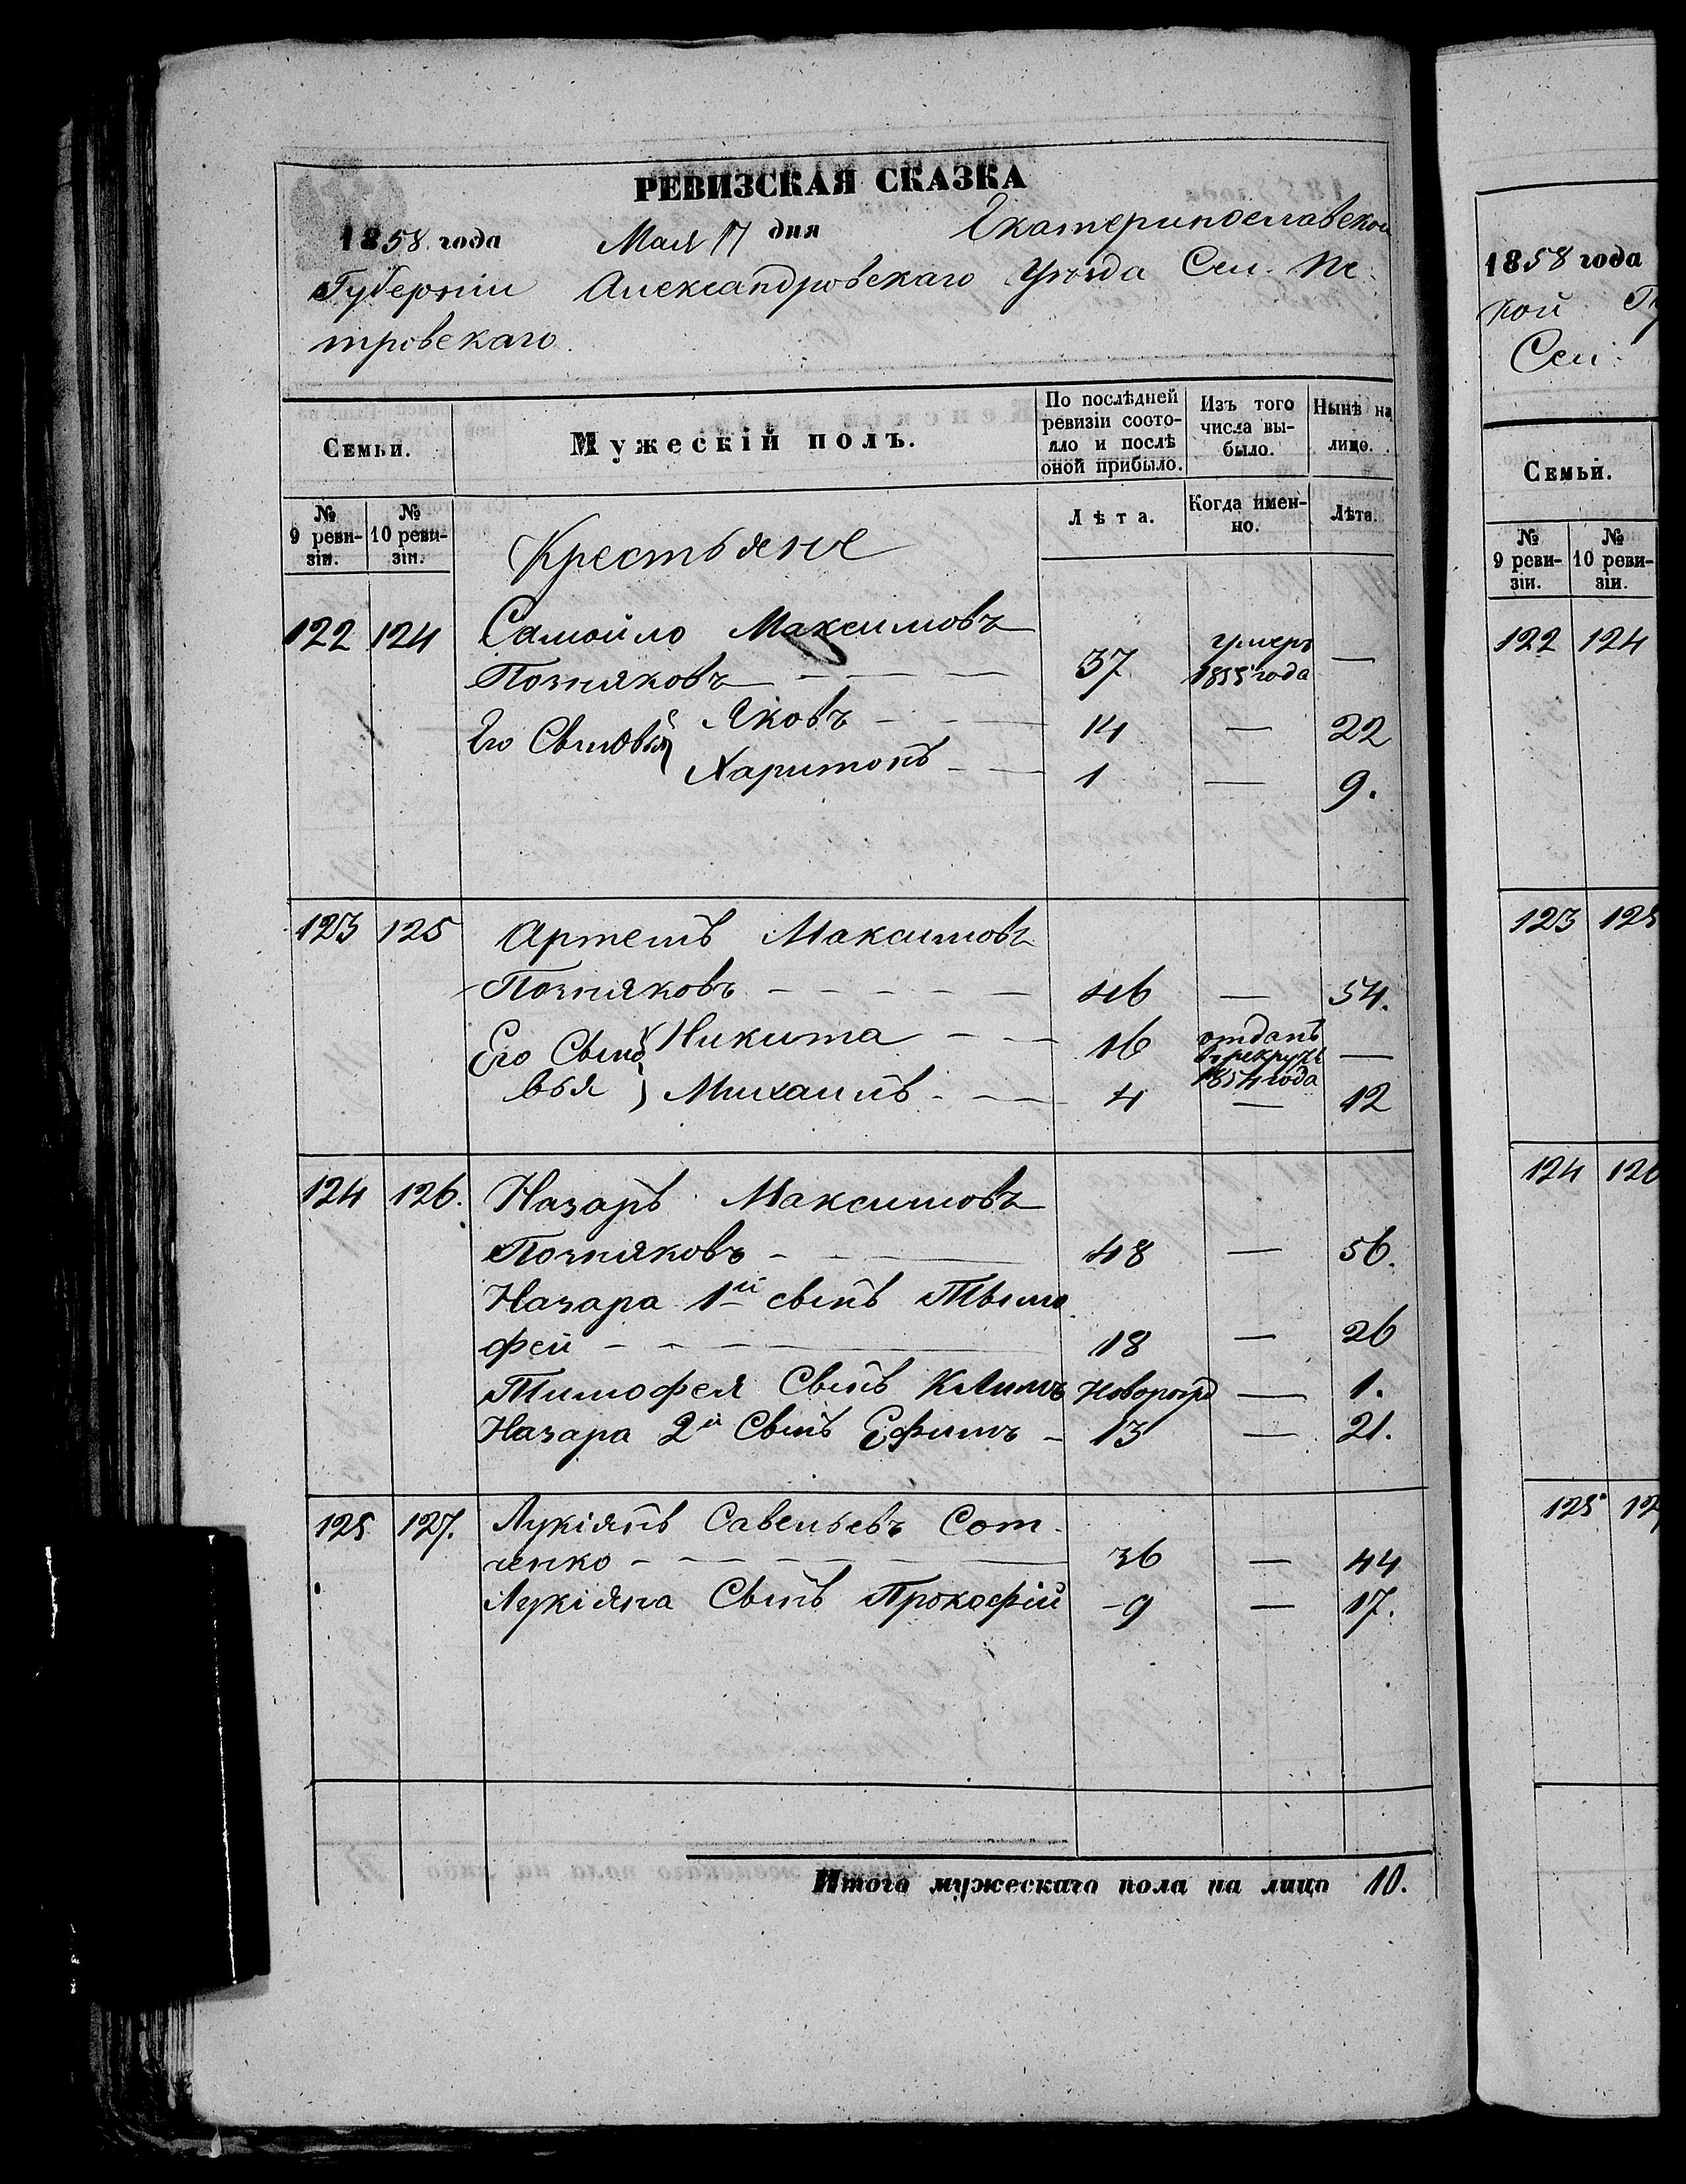 РЕВИЗСКАЯ СКАЗКА
1858 года Мая 17 дня Екатеринославской
Губерніи Александровскаго Уѣзда Сел. Пе-
тровскаго.
Семьи. Мужескій полъ. По послѣдней ревизіи состо-яло и послѣ оной прибыло. Изъ того числа вы-было. Нынѣ на лицо.
№ 9 реви-зіи. № 10 реви-зіи. Лѣта. Когда имен-но. Лѣта.
Крестьяне
122 124 Самойло Максимовъ
Позняковъ — — — 37 умеръ 1855 года —
Его Сыновья { Яковъ — — 14 — 22
Харитонъ — — 1 — 9.
123 125 Артемъ Максимовъ
Позняковъ — — — — — 46 — 54.
Его Сыно- { Никита — — 16 отданъ в рекруты 1854 года —
вья } Михаилъ — — 4 — 12
124 126. Назаръ Максимовъ
Позняковъ — — 48 — 56.
Назара 1й сынъ Тымо
фей — — — — 18 — 26
Тимофея Сынъ Климъ Новорожд — 1.
Назара 2й Сынъ Ефимъ — 13 — 21.
125 127. Лукіянъ Савельевъ Сот-
ченко — — — — — 36 — 44
Лукіяна Сынъ Прокофій — 9 — 17.
Итого мужескаго пола на лицо 10.
1858 года
кой
Сел.
Семьи.
№ 9 реви-зіи. № 10 реви-зіи.
122 124
123 125
124 126
125 127